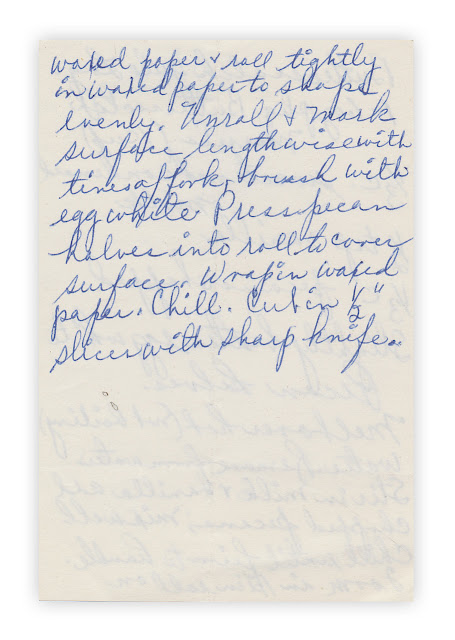 waxed paper & roll tightly
in waxed paper to shape
evenly. Unroll & mark
surface lengthwise with
tines of fork, brush with
egg white. Press pecan
halves into roll to cover
surface. Wrap in waxed
paper. Chill. Cut in ½"
slices with sharp knife.